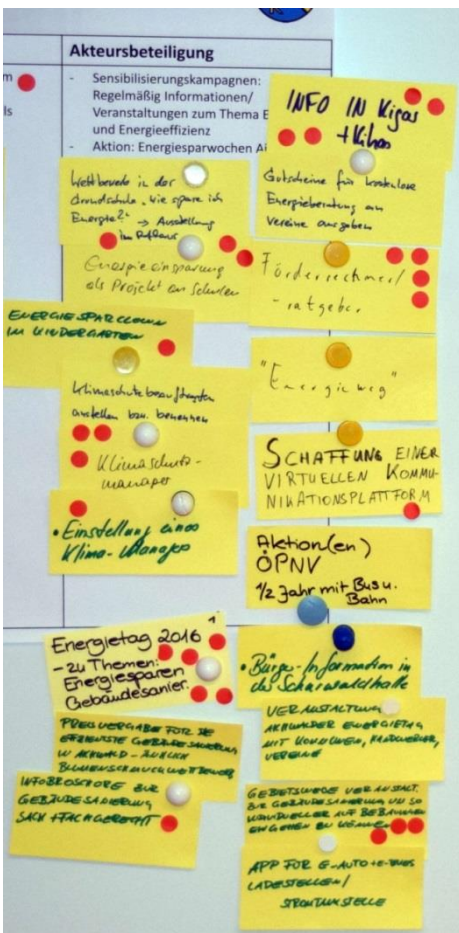 Akteursbeteiligung
- Sensibilisierungskampagnen:
Regelmäßig Informationen/
Veranstaltungen zum Thema E
und Energieeffizienz
- Aktion: Energiesparwochen Ai
m
ls
INFO IN Kigas
+ Kihas
Wettbewerb in der
Grundschule „wie spare ich
Energie?" → Ausstellung
im Rathaus
Gutscheine für kostenlose
Energieberatung an
Vereine ausgeben
Energieeinsparung
als Projekt an Schulen
Förderrechner/
-ratgeber
ENERGIESPARCLOWN
IM KINDERGARTEN
"Energieweg"
Klimaschutzbeauftragten
anstellen bzw. benennen
Klimaschutz-
manager
SCHAFFUNG EINER
VIRTUELLEN KOMMU-
NIKATIONSPLATTFORM
• Einstellung eines
Klima-Managers
Aktion(en)
ÖPNV
1/2 Jahr mit Bus u.
Bahn
Energietag 2016
- zu Themen:
Energiesparen
Gebäudesanier.
• Bürger-Information in
der Scheiwaldhalle
PREISVERGABE FÜR DIE
EFFIZIENTESTE GEBÄUDESANIERUNG
IN AICHWALD - ÄHNLICH
BLUMENSCHMUCKWETTBEWERB
VERANSTALTUNG
AICHWALDER ENERGIETAG
MIT KOMMUNEN, HANDWERKER,
VEREINE
INFOBROSCHÜRE ZUR
GEBÄUDESANIERUNG
SACH + FACHGERECHT
GEBIETSWEISE VERANSTALT.
ZUR GEBÄUDESANIERUNG UM SO
INDIVIDUELLER AUF BEBAUUNG
EINGEHEN ZU KÖNNEN
APP FÜR E-AUTO + E-BIKES
LADESTELLEN/
STROMTANKSTELLE